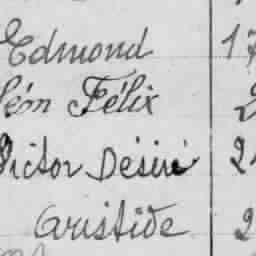 Edmond 17
Léon Félix 2
Victor Désiré 2
Aristide 2